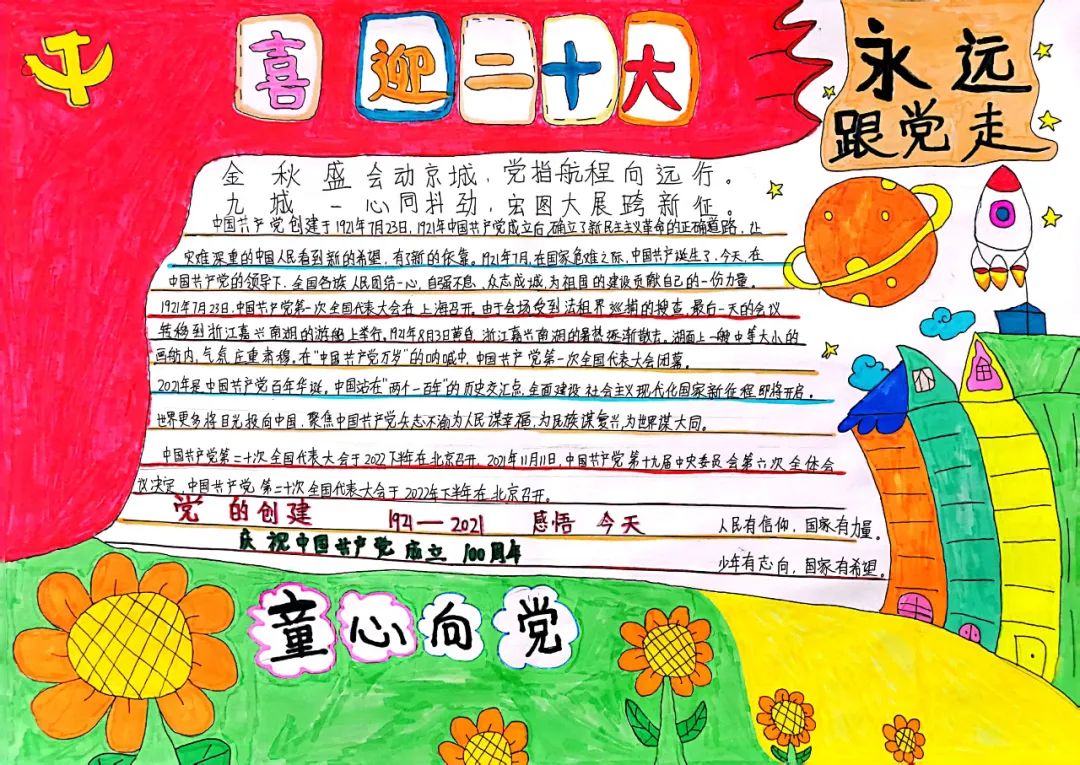 喜迎二十大
永远
跟党走
金秋盛会动京城，党指航程向远行。
九城一心同抖劲，宏图大展跨新征。
中国共产党创建于1921年7月23日，1921年中国共产党成立后，确立了新民主主义革命的正确道路，让
灾难深重的中国人民看到新的希望，有了新的依靠。1921年7月，在国家危难之际，中国共产党诞生了，今天，在
中国共产党的领导下，全国各族人民团结一心，自强不息，众志成城，为祖国的建设贡献自己的一份力量。
1921年7月23日，中国共产党第一次全国代表大会在上海召开。由于会场受到法租界巡捕的搜查，最后一天的会议
转移到浙江嘉兴南湖的游船上举行。1921年8月3日黄昏，浙江嘉兴南湖的暑热逐渐散去。湖面上一艘中等大小的
画舫内，气氛庄重肃穆。在“中国共产党万岁”的呐喊中，中国共产党第一次全国代表大会闭幕。
2021年是中国共产党百年华诞。中国站在“两个一百年”的历史交汇点，全面建设社会主义现代化国家新征程即将开启。
世界更多将目光投向中国，聚焦中国共产党矢志不渝为人民谋幸福，为民族谋复兴，为世界谋大同。
中国共产党第二十次全国代表大会于2022下半年在北京召开。2021年11月11日，中国共产党第十九届中央委员会第六次全体会
议决定，中国共产党第二十次全国代表大会于2022年下半年在北京召开。
党的创建 1921—2021 感悟今天
人民有信仰，国家有力量。
庆祝中国共产党成立100周年
少年有志向，国家有希望。
童心向党